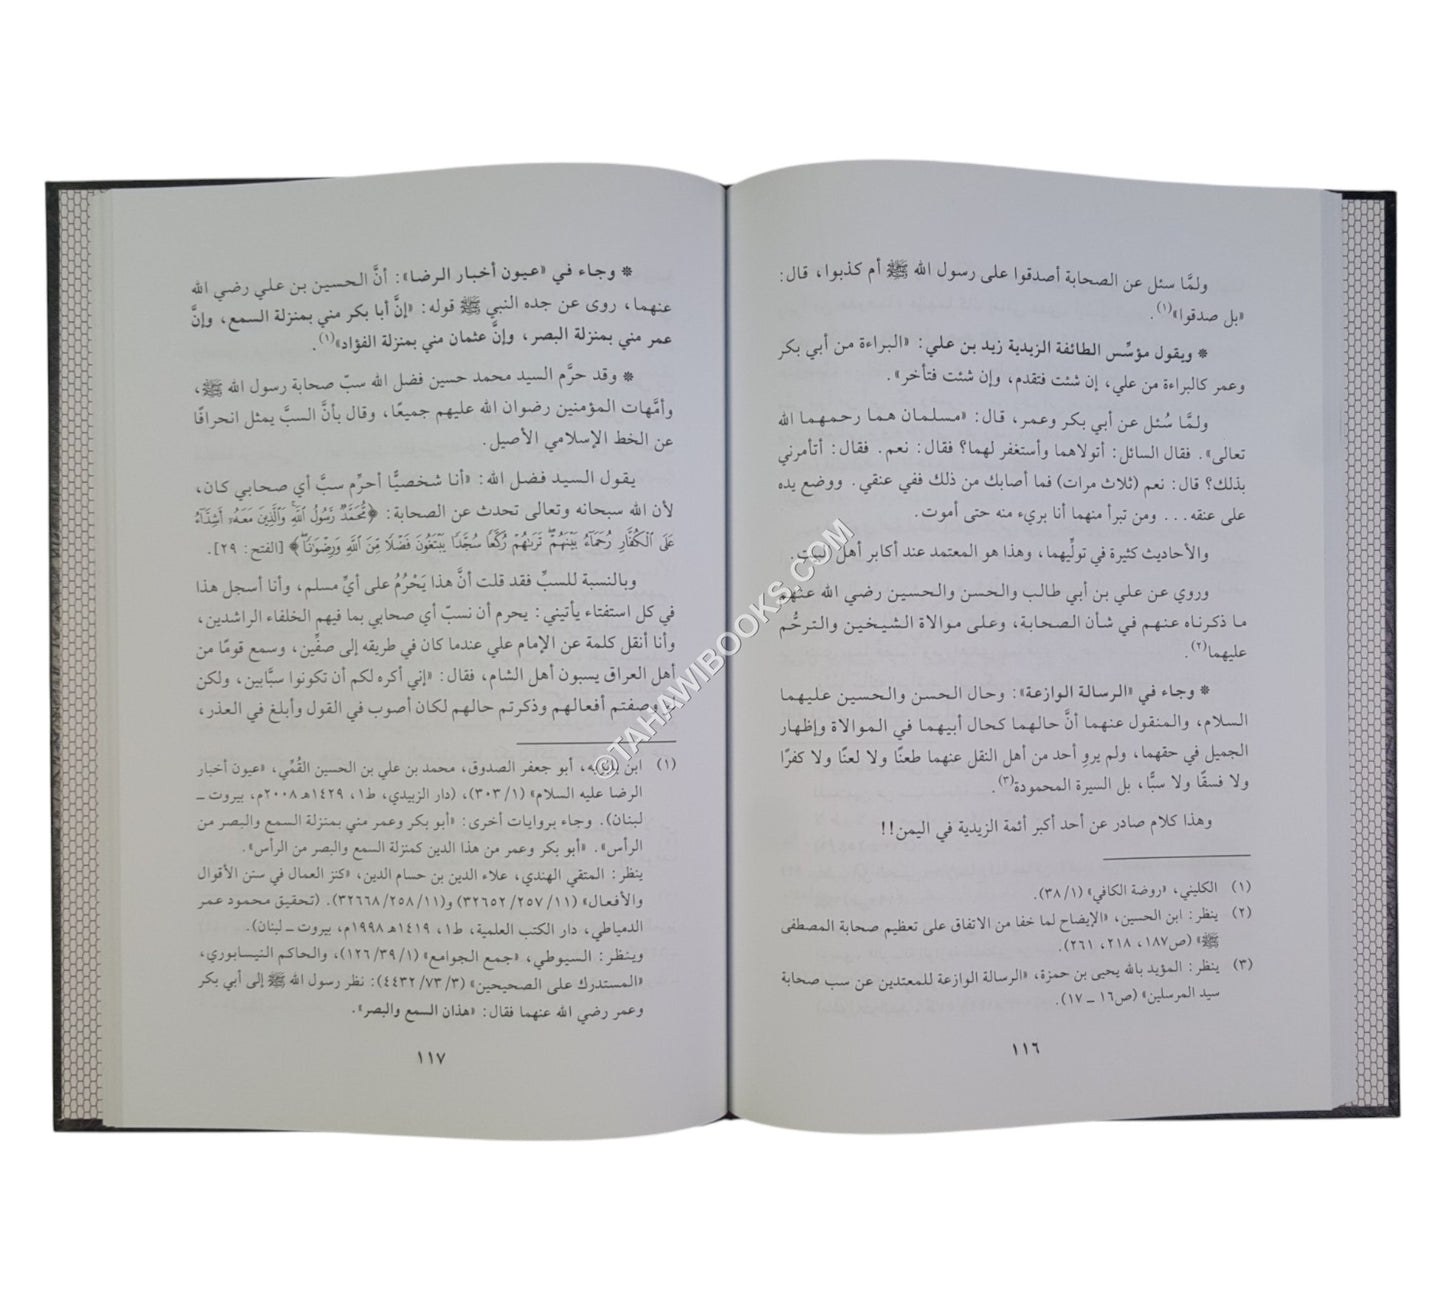 ولمَّا سئل عن الصحابة أصدقوا على رسول الله ﷺ أم كذبوا، قال:
«بل صدقوا»(١).
* ويقول مؤسِّس الطائفة الزيدية زيد بن علي: «البراءة من أبي بكر
وعمر كالبراءة من علي، إن شئت فتقدم، وإن شئت فتأخر».
ولمَّا سُئل عن أبي بكر وعمر، قال: «مسلمان هما رحمهما الله
تعالى». فقال السائل: أتولاهما وأستغفر لهما؟ فقال: نعم. فقال: أتأمرني
بذلك؟ قال: نعم (ثلاث مرات) فما أصابك من ذلك ففي عنقي. ووضع يده
على عنقه... ومن تبرأ منهما أنا بريء منه حتى أموت.
والأحاديث كثيرة في تولِّيهما، وهذا هو المعتمد عند أكابر أهل البيت.
وروي عن علي بن أبي طالب والحسن والحسين رضي الله عنهم
ما ذكرناه عنهم في شأن الصحابة، وعلى موالاة الشيخين والترحُّم
عليهما(٢).
* وجاء في «الرسالة الوازعة»: وحال الحسن والحسين عليهما
السلام، والمنقول عنهما أنَّ حالهما كحال أبيهما في الموالاة وإظهار
الجميل في حقهما، ولم يروِ أحد من أهل النقل عنهما طعنًا ولا لعنًا ولا كفرًا
ولا فسقًا ولا سبًّا، بل السيرة المحمودة(٣).
وهذا كلام صادر عن أحد أكبر أئمة الزيدية في اليمن!!
(١) الكليني، «روضة الكافي» (٣٨/١).
(٢) ينظر: ابن الحسين، «الإيضاح لما خفا من الاتفاق على تعظيم صحابة المصطفى
ﷺ» (ص١٨٧، ٢١٨، ٢٦١).
(٣) ينظر: المؤيد بالله يحيى بن حمزة، «الرسالة الوازعة للمعتدين عن سب صحابة
سيد المرسلين» (ص١٦ ـ ١٧).
١١٦
* وجاء في «عيون أخبار الرضا»: أنَّ الحسين بن علي رضي الله
عنهما، روى عن جده النبي ﷺ قوله: «إنَّ أبا بكر مني بمنزلة السمع، وإنَّ
عمر مني بمنزلة البصر، وإنَّ عثمان مني بمنزلة الفؤاد»(١).
* وقد حرَّم السيد محمد حسين فضل الله سبّ صحابة رسول الله ﷺ،
وأمَّهات المؤمنين رضوان الله عليهم جميعًا، وقال بأنَّ السبَّ يمثل انحرافًا
عن الخط الإسلامي الأصيل.
يقول السيد فضل الله: «أنا شخصيًّا أحرِّم سبَّ أي صحابي كان،
لأن الله سبحانه وتعالى تحدث عن الصحابة: ﴿مُّحَمَّدٌ رَّسُولُ ٱللَّهِ وَٱلَّذِينَ مَعَهُۥٓ أَشِدَّآءُ
عَلَى ٱلْكُفَّارِ رُحَمَآءُ بَيْنَهُمْ تَرَىٰهُمْ رُكَّعًا سُجَّدًا يَبْتَغُونَ فَضْلًا مِّنَ ٱللَّهِ وَرِضْوَٰنًا﴾ [الفتح: ٢٩].
وبالنسبة للسبِّ فقد قلت أنَّ هذا يَحْرُمُ على أيِّ مسلم، وأنا أسجل هذا
في كل استفتاء يأتيني: يحرم أن نسبّ أي صحابي بما فيهم الخلفاء الراشدين،
وأنا أنقل كلمة عن الإمام علي عندما كان في طريقه إلى صفِّين، وسمع قومًا من
أهل العراق يسبون أهل الشام، فقال: «إني أكره لكم أن تكونوا سبَّابين، ولكن
وصفتم أفعالهم وذكرتم حالهم لكان أصوب في القول وأبلغ في العذر،
(١) ابن بابويه، أبو جعفر الصدوق، محمد بن علي بن الحسين القُمِّي، «عيون أخبار
الرضا عليه السلام» (٣٠٣/١)، (دار الزبيدي، ط١، ١٤٢٩هـ ٢٠٠٨م، بيروت ـ
لبنان). وجاء بروايات أخرى: «أبو بكر وعمر مني بمنزلة السمع والبصر من
الرأس». «أبو بكر وعمر من هذا الدين كمنزلة السمع والبصر من الرأس».
ينظر: المتقي الهندي، علاء الدين بن حسام الدين، «كنز العمال في سنن الأقوال
والأفعال» (٣٢٦٥٢/٢٥٧/١١) و(٣٢٦٦٨/٢٥٨/١١). (تحقيق محمود عمر
الدمياطي، دار الكتب العلمية، ط١، ١٤١٩هـ ١٩٩٨م، بيروت ـ لبنان).
وينظر: السيوطي، «جمع الجوامع» (١٢٦/٣٩/١)، والحاكم النيسابوري،
«المستدرك على الصحيحين» (٤٤٣٢/٧٣/٣): نظر رسول الله ﷺ إلى أبي بكر
وعمر رضي الله عنهما فقال: «هذان السمع والبصر».
١١٧
©TAHAWIBOOKS.COM